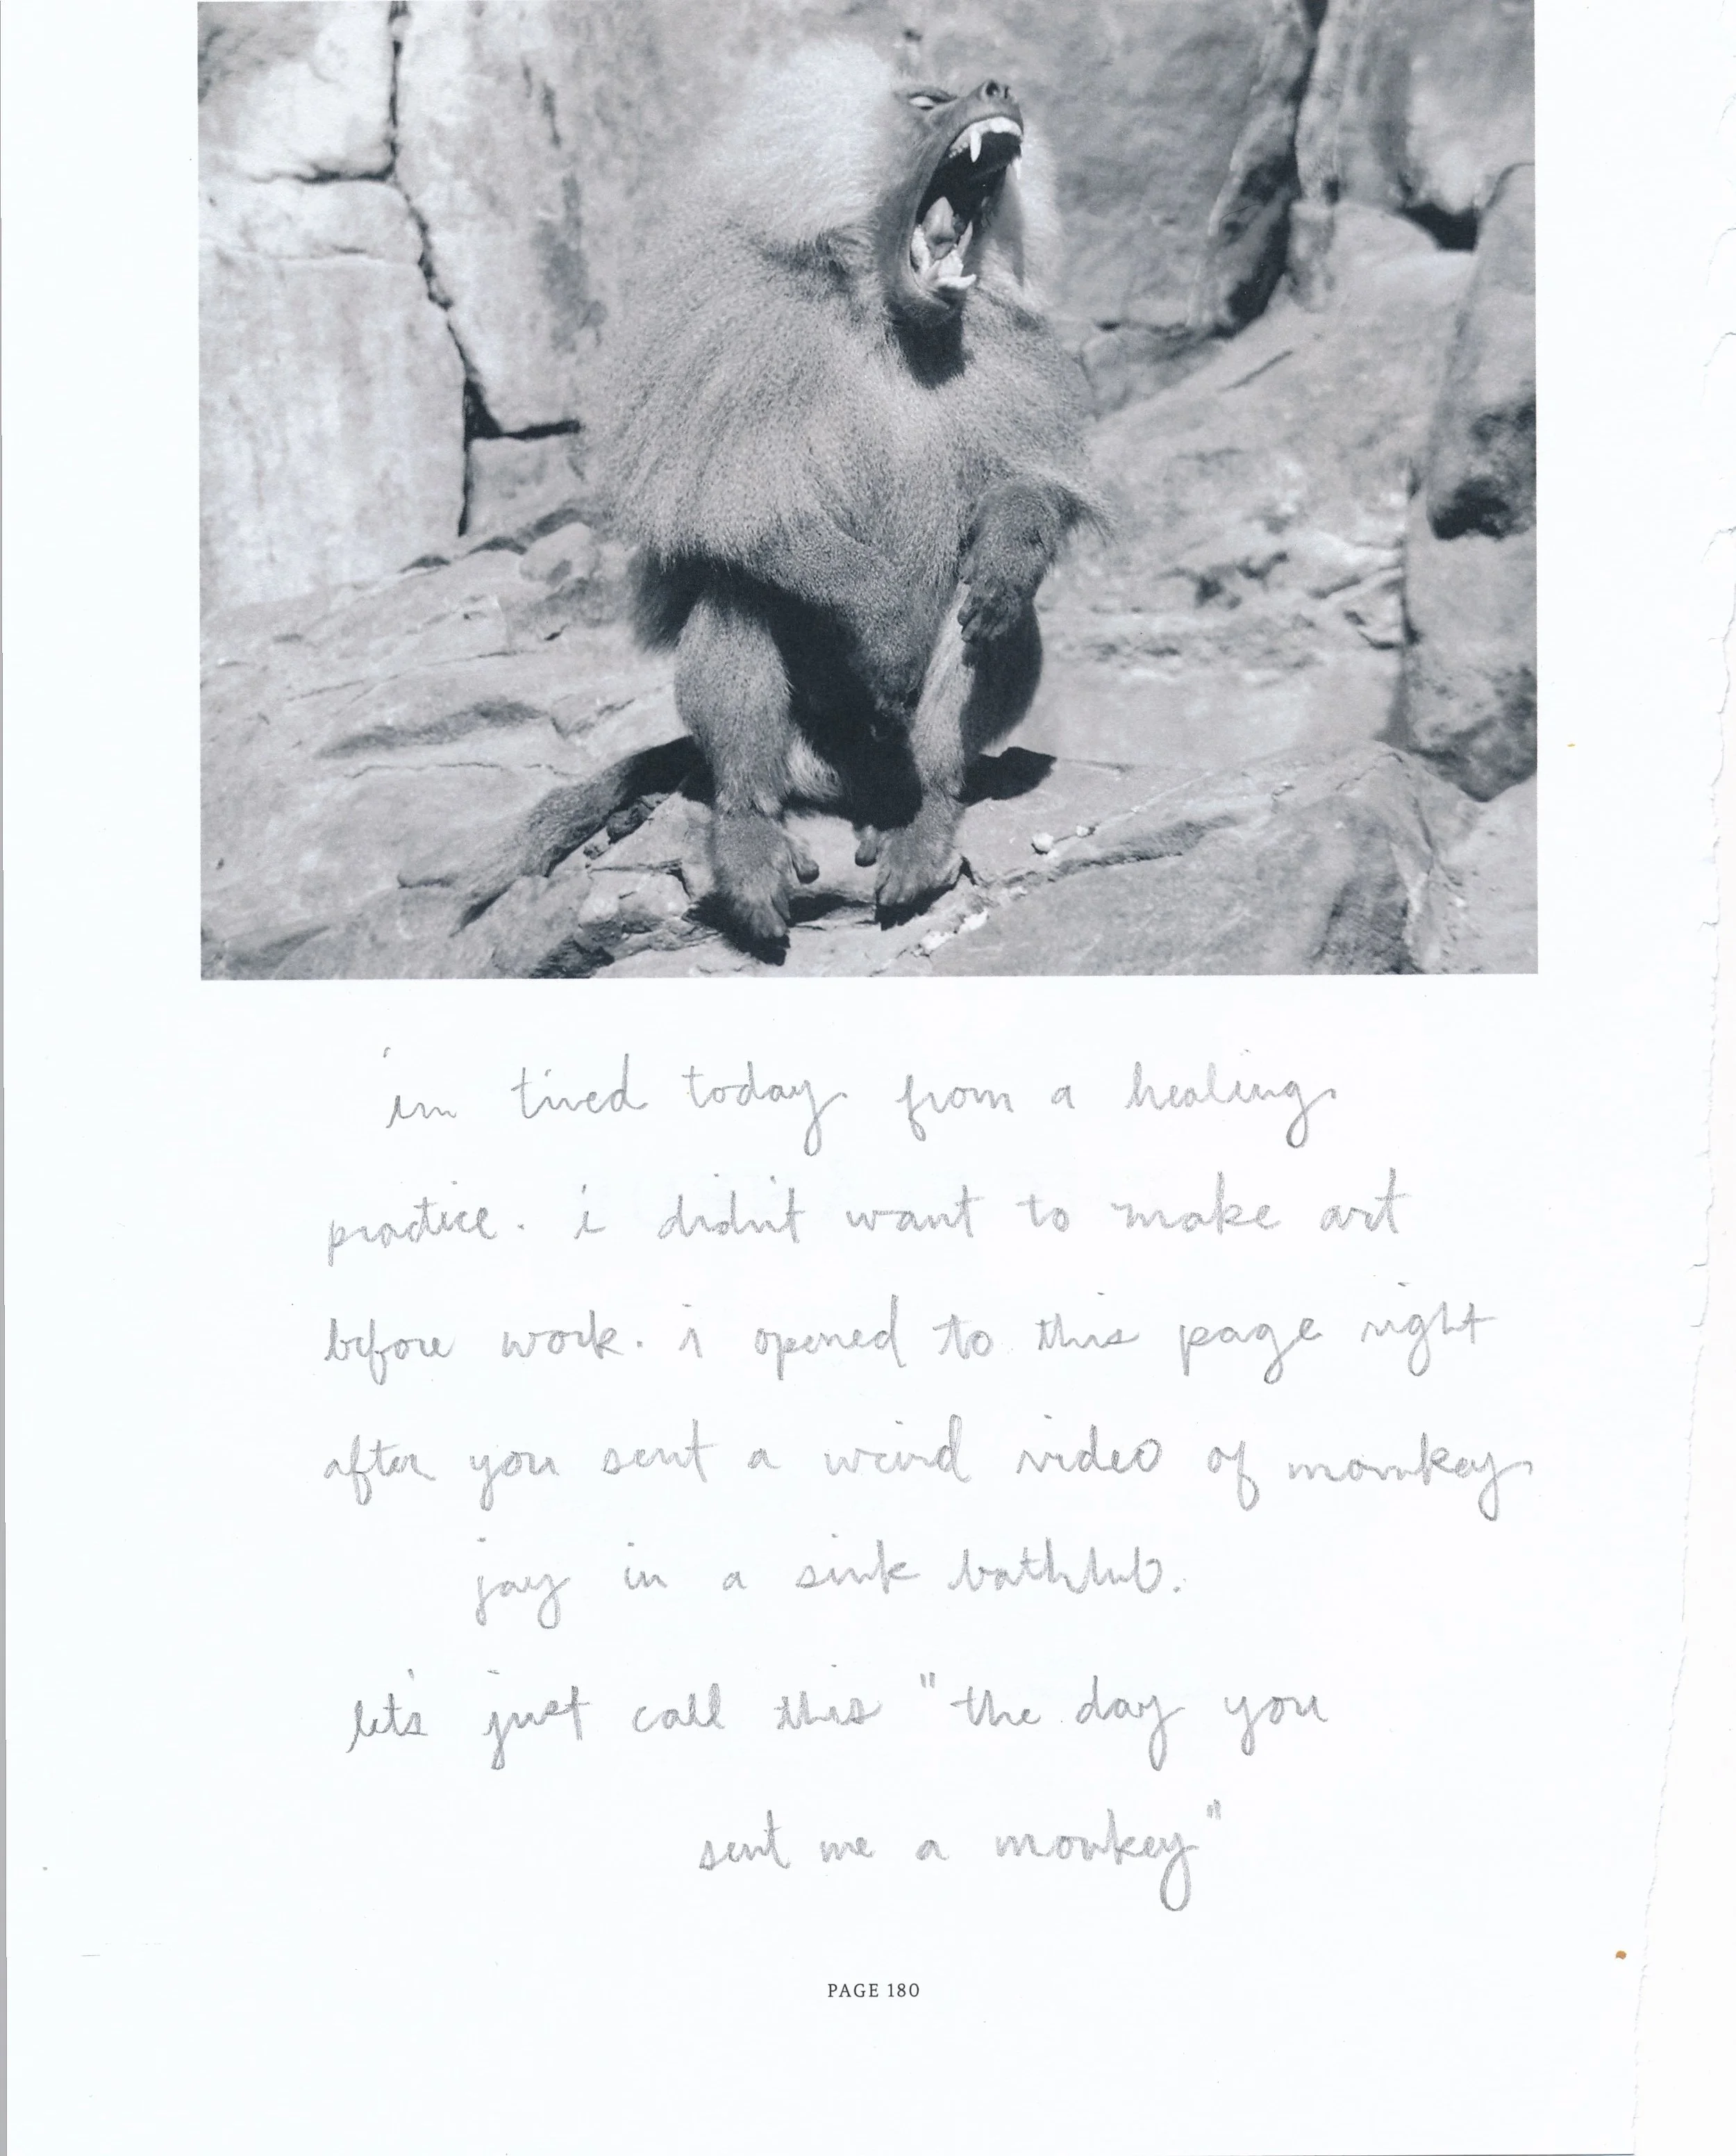 i'm tired today from a healing
practice. i didn't want to make art
before work. i opened to this page right
after you sent a weird video of monkey
jay in a sink bathtub.
let's just call this "the day you
sent me a monkey"
PAGE 180